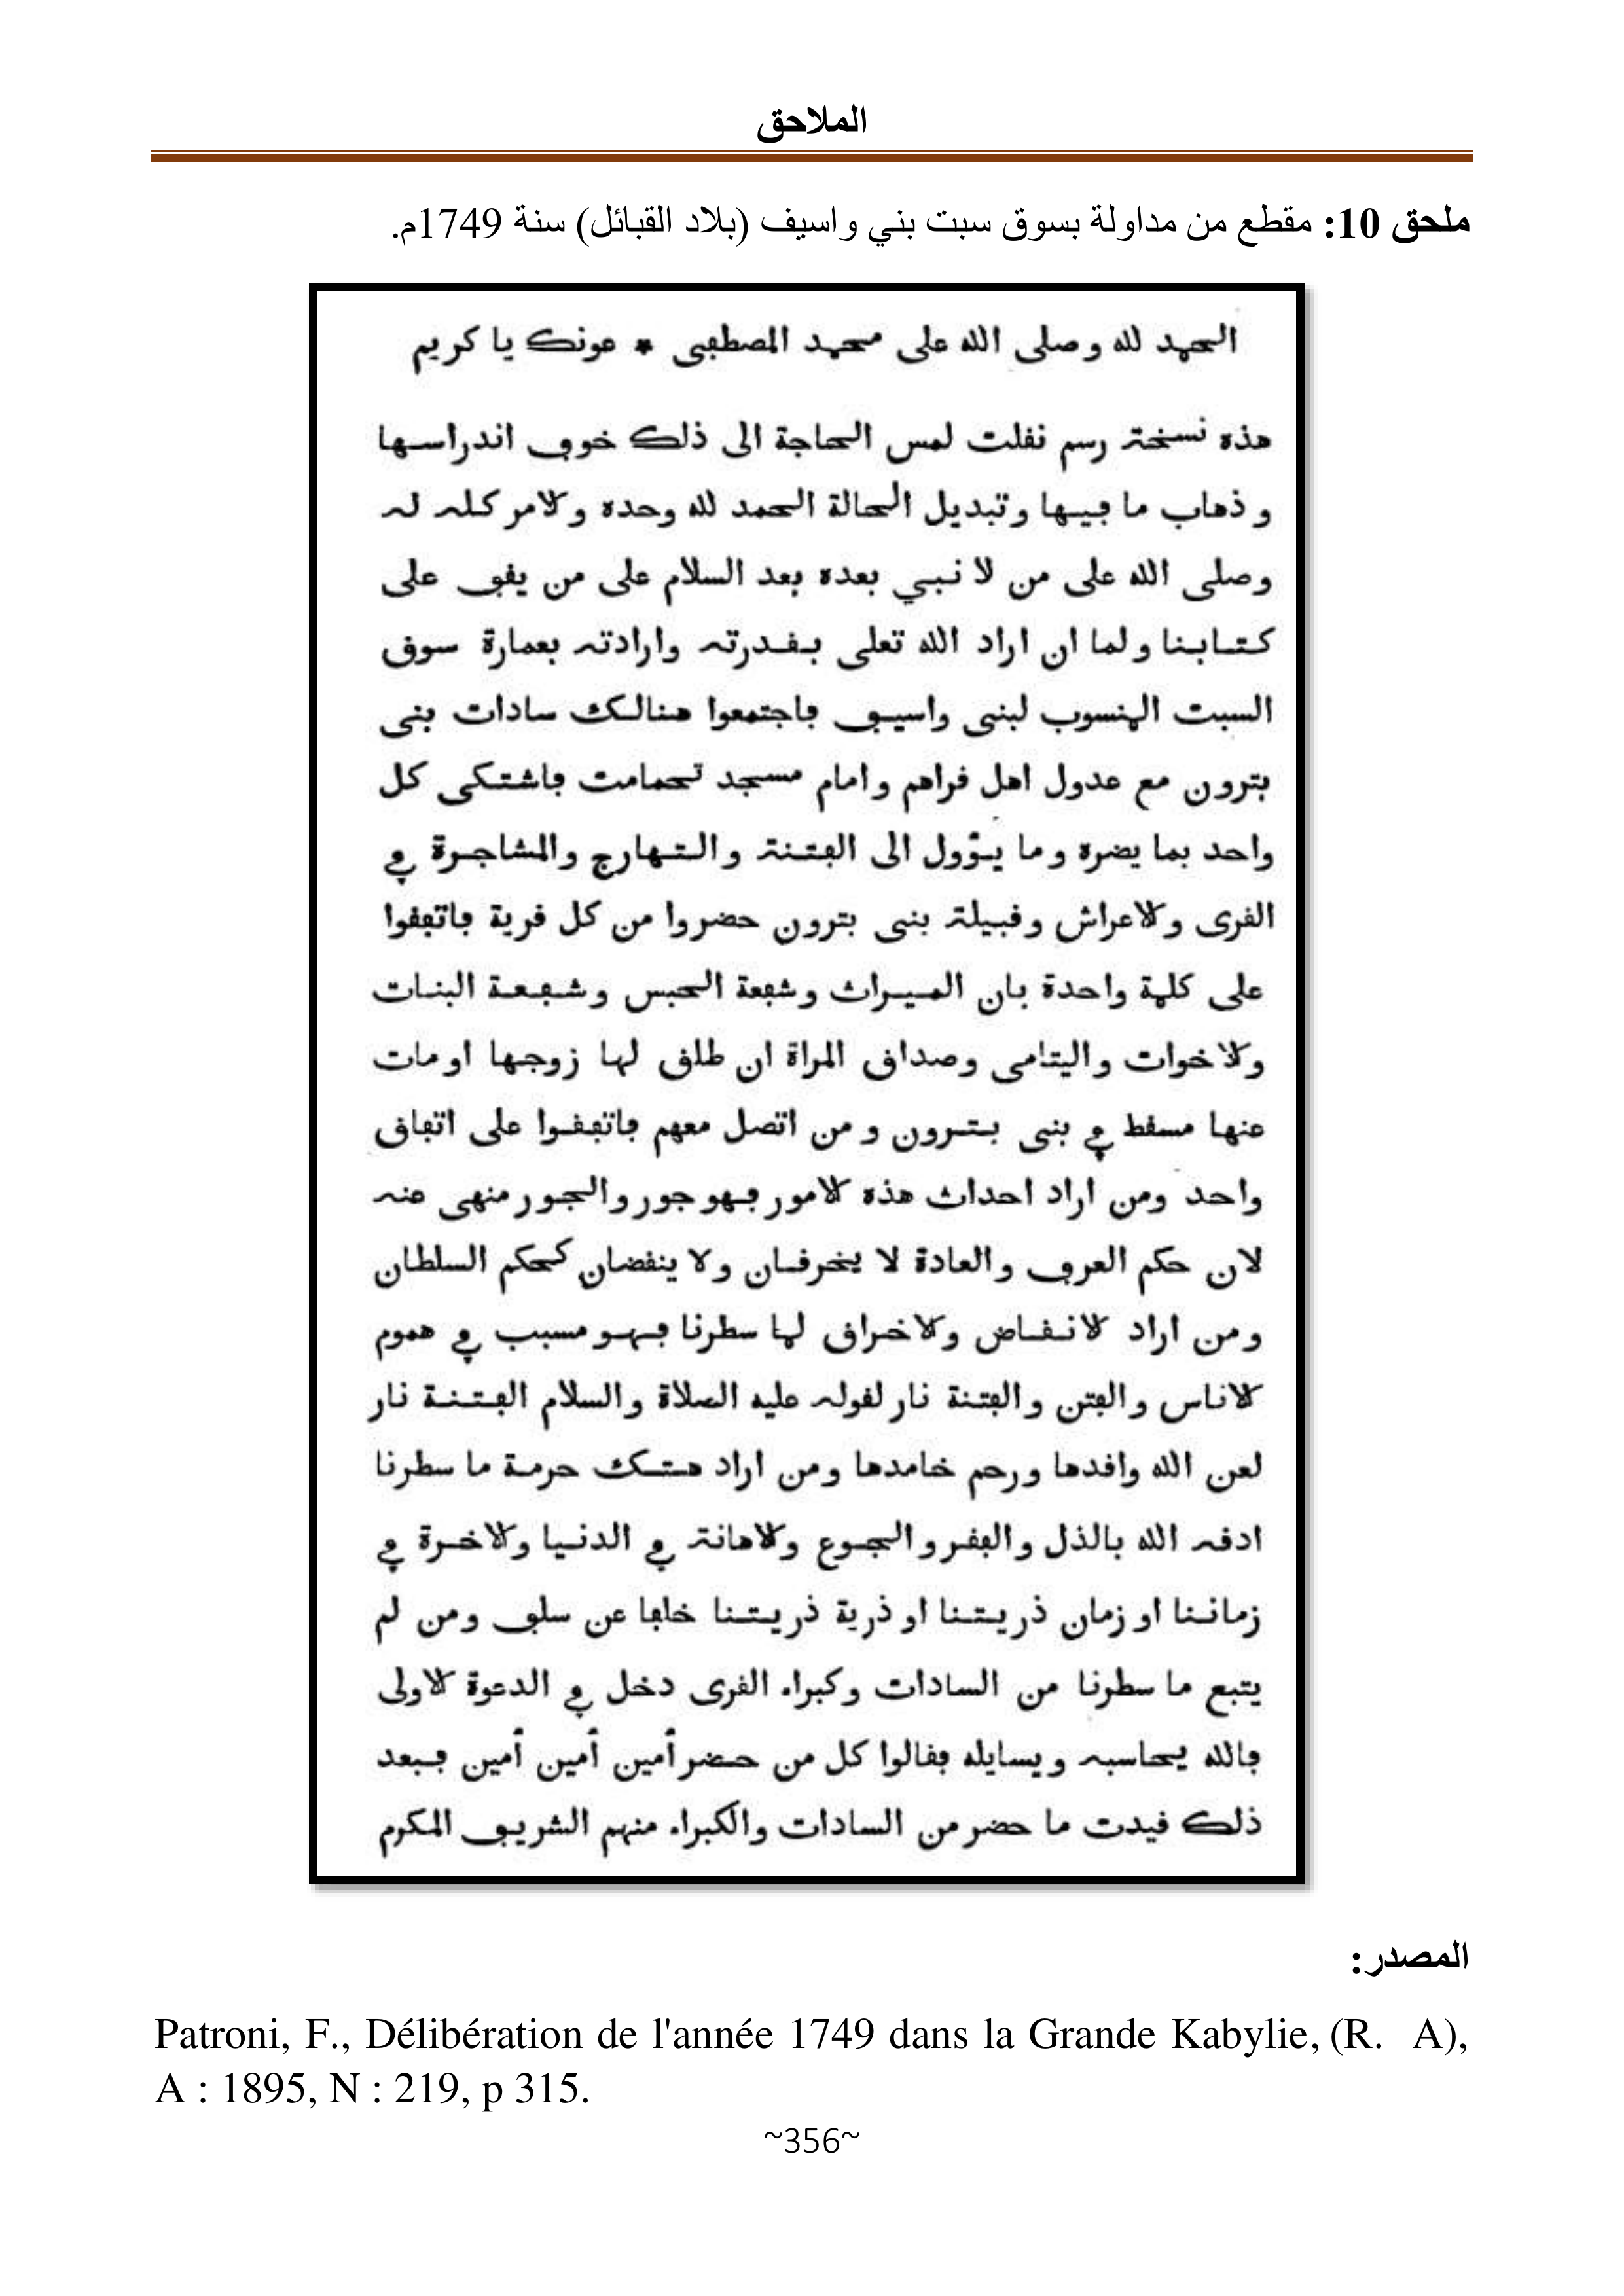 الملاحق
ملحق 10: مقطع من مداولة بسوق سبت بني واسيف (بلاد القبائل) سنة 1749م.
الحمد لله وصلى الله على محمد المصطفى * عونك يا كريم
هذه نسخة رسم نقلت لمس الحاجة الى ذلك خوف اندراسها
وذهاب ما فيها وتبديل الحالة الحمد لله وحده والامر كله له
وصلى الله على من لا نبي بعده بعد السلام على من يقف على
كتابنا ولما ان اراد الله تعلى بقدرته وارادته بعمارة سوق
السبت المنسوب لبنى واسيف فاجتمعوا هنالك سادات بنى
بترون مع عدول اهل قراهم وامام مسجد تحمامت فاشتكى كل
واحد بما يضره وما يؤول الى الفتنة والتهارج والمشاجرة في
القرى والاعراش وقبيلة بنى بترون حضروا من كل قرية فاتفقوا
على كلمة واحدة بان الميراث وشفعة الحبس وشفعة البنات
والاخوات واليتامى وصداق المراة ان طلق لها زوجها او مات
عنها مسقط في بنى بترون ومن اتصل معهم فاتفقوا على اتفاق
واحد ومن اراد احداث هذه الامور فهو جور والجور منهى عنه
لان حكم العرف والعادة لا يخرقان ولا ينقضان كحكم السلطان
ومن اراد الانقاض والاخراق لما سطرنا فهو مسبب في هموم
الاناس والفتن والفتنة نار لقوله عليه الصلاة والسلام الفتنة نار
لعن الله واقدها ورحم خامدها ومن اراد هتك حرمة ما سطرنا
ادقه الله بالذل والفقر والجوع والاهانة في الدنيا والاخرة في
زماننا او زمان ذريتنا او ذرية ذريتنا خلفا عن سلف ومن لم
يتبع ما سطرنا من السادات وكبراء القرى دخل في الدعوة الاولى
فالله يحاسبه ويسايله فقالوا كل من حضر أمين أمين أمين فبعد
ذلك قيدت ما حضر من السادات والكبراء منهم الشريف المكرم
المصدر:
Patroni, F., Délibération de l'année 1749 dans la Grande Kabylie, (R. A),
A : 1895, N : 219, p 315.
~356~